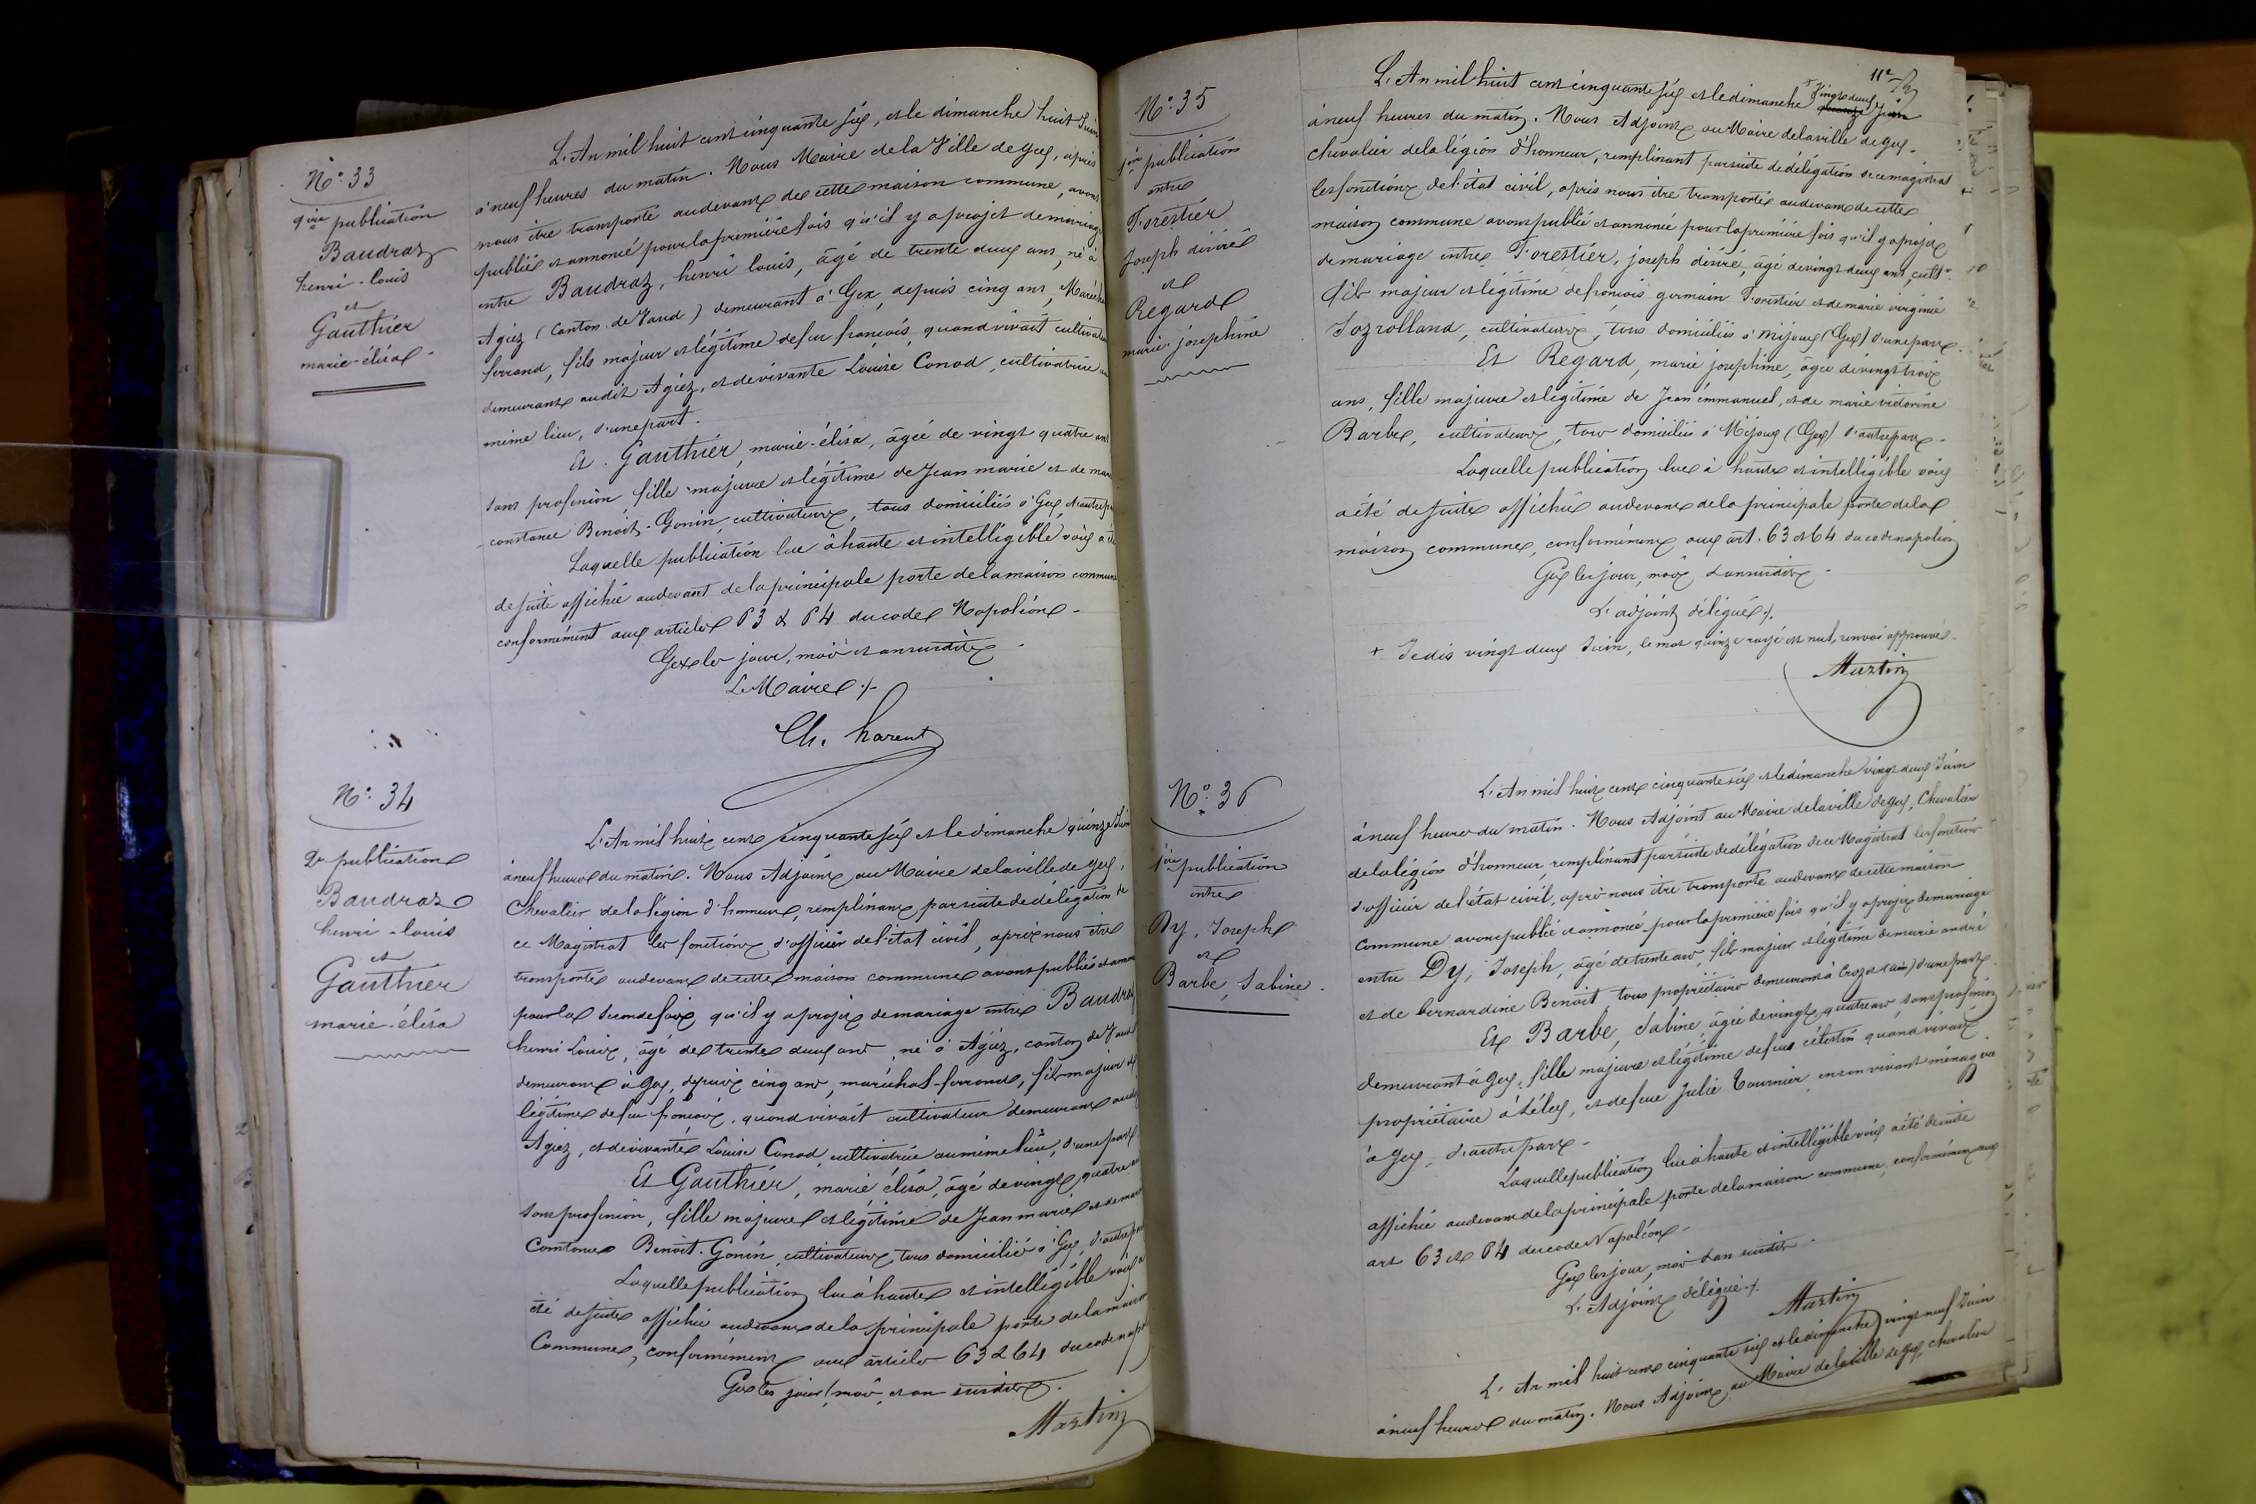 N° 33
1ère publication
Baudraz
henri-louis
et
Gauthier
marie-élisa
L'An mil huit cent cinquante six, et le dimanche huit Juin
à neuf heures du matin. Nous Maire de la Ville de Gex, après
nous être transporté audevant de cette maison commune, avons
publié et annoncé pour la première fois qu'il y a projet de mariage
entre Baudraz, henri louis, âgé de trente deux ans, né à
Agiez (Canton de Vaud) demeurant à Gex, depuis cinq ans, Maréchal
ferrand, fils majeur et légitime de feu françois, quand vivait cultivateur
demeurant audit Agiez, et de vivante Louise Conod, cultivatrice au
même lieu, d'une part.
Et Gauthier, marie-élisa, âgée de vingt quatre ans
sans profession fille majeure et légitime de Jean marie et de marie
constance Benoit-Gonin, cultivateurs, tous domiciliés à Gex, d'autre part
Laquelle publication lue à haute et intelligible voix a été
de suite affichée audevant de la principale porte de la maison commune
conformément aux articles 63 & 64 du code Napoléon
Gex les jour, mois et an susdits
Le Maire
Ch. harent
N° 34
2e publication
Baudraz
henri-louis
et
Gauthier
marie-élisa
L'An mil huit cent cinquante six et le dimanche quinze Juin
à neuf heures du matin. Nous Adjoint au Maire de la ville de Gex,
Chevalier de la légion d'honneur, remplissant par suite de délégation de
ce Magistrat les fonctions d'officier de l'état civil, après nous être
transporté audevant de cette maison commune avons publié et annoncé
pour la seconde fois qu'il y a projet de mariage entre Baudraz
henri Louis, âgé de trente deux ans né à Agiez, canton de Vaud
demeurant à Gex, depuis cinq ans, maréchal-ferrand, fils majeur et
légitime de feu françois, quand vivait cultivateur demeurant audit
Agiez, et de vivante Louise Conod, cultivatrice au même lieu, d'une part
Et Gauthier, marie élisa, âgé de vingt quatre ans
sans profession, fille majeure et légitime de Jean marie et de marie
Constance Benoit-Gonin, cultivateurs tous domiciliés à Gex, d'autre part
Laquelle publication lue à haute et intelligible voix a
été de suite affichée audevant de la principale porte de la maison
Commune, conformément aux articles 63 & 64 du code napol
Gex les jour, mois et an susdits.
Martin
N° 35
1ère publication
entre
Forestier
Joseph désiré
et
Regard
marie-joséphine
112
L'An mil huit cent cinquante six et le dimanche + Vingt deux quinze Juin
à neuf heures du matin. Nous Adjoint au Maire de la ville de Gex
chevalier de la légion d'honneur, remplissant par suite de délégation de ce magistrat
les fonctions de l'état civil, après nous être transporté audevant de cette
maison commune avons publié et annoncé pour la première fois qu'il y a projet
de mariage entre Forestier, joseph désiré, âgé de vingt deux ans, cultr
fils majeur et légitime de françois germain Forestier et de marie virginie
Grosrolland, cultivateurs, tous domiciliés à Mijoux (Gex) d'une part.
Et Regard, marie joséphine, âgée de vingt trois
ans, fille majeure et légitime de Jean émmanuel, et de marie victorine
Barbe, cultivateurs, tous domiciliés à Mijoux (Gex) d'autre part
Laquelle publication lue à haute et intelligible voix
a été de suite affichée audevant de la principale porte de la
maison commune, conformément aux art. 63 et 64 du code napoléon
Gex les jour, mois & an susdits
L'adjoint délégué
+ Je dis vingt deux Juin, le mot quinze rayé est nul, renvoi approuvé
Martin
N° 36
1ère publication
entre
Dy, Joseph
et
Barbe, Sabine
L'An mil huit cent cinquante six et le dimanche vingt deux Juin
à neuf heures du matin. Nous Adjoint au Maire de la ville de Gex, Chevalier
de la légion d'honneur, remplissant par suite de délégation de ce Magistrat les fonctions
d'officier de l'état civil, après nous être transporté audevant de cette maison
commune avons publié et annoncé pour la première fois qu'il y a projet de mariage
entre Dy, Joseph, âgé de trente ans, fils majeur et légitime de marie andré
et de bernardine Benoit, tous propriétaires demeurant à Crozet (ain) d'une part
Et Barbe, Sabine, âgée de vingt quatre ans, sans profession
demeurant à Gex, fille majeure et légitime de feu célestin quand vivait
propriétaire à Lélex, et de feue Julie Tournier en son vivant ménagère
à Gex, d'autre part
Laquelle publication lue à haute et intelligible voix a été de suite
affichée audevant de la principale porte de la maison commune, conformément aux
art 63 et 64 du code Napoléon
Gex les jour, mois & an susdits
L'Adjoint délégué
Martin
L'An mil huit cent cinquante six et le dimanche vingt neuf Juin
à neuf heures du matin. Nous Adjoint au Maire de la ville de Gex, chevalier